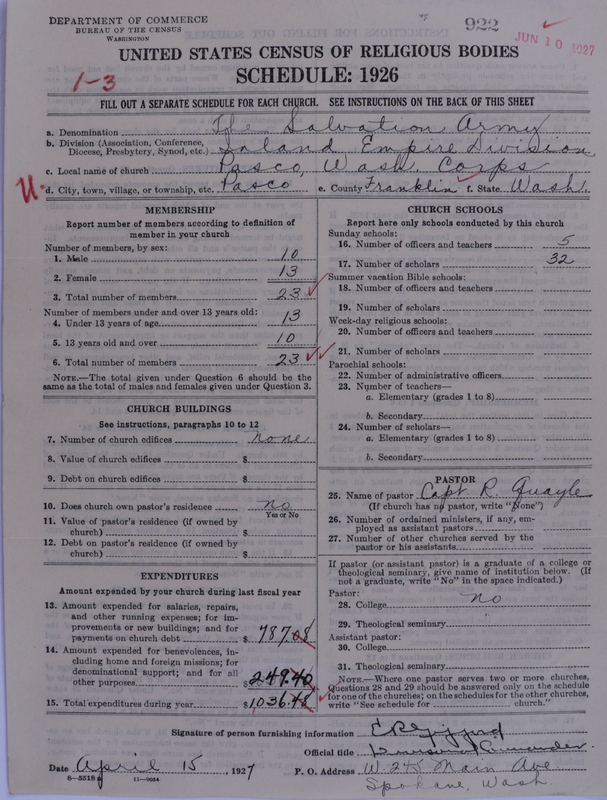 DEPARTMENT OF COMMERCE
BUREAU OF THE CENSUS
WASHINGTON
922
JUN 10 1927
UNITED STATES CENSUS OF RELIGIOUS BODIES
SCHEDULE: 1926
1-3
FILL OUT A SEPARATE SCHEDULE FOR EACH CHURCH. SEE INSTRUCTIONS ON THE BACK OF THIS SHEET
a. Denomination The Salvation Army
b. Division (Association, Conference, Diocese, Presbytery, Synod, etc.) Inland Empire Division
c. Local name of church Pasco, Wash. Corps
U
d. City, town, village, or township, etc. Pasco e. County Franklin f. State Wash.
MEMBERSHIP
Report number of members according to definition of
member in your church
Number of members, by sex:
1. Male 10
2. Female 13
3. Total number of members 23
Number of members under and over 13 years old:
4. Under 13 years of age 13
5. 13 years old and over 10
6. Total number of members 23
NOTE.—The total given under Question 6 should be the
same as the total of males and females given under Question 3.
CHURCH BUILDINGS
See instructions, paragraphs 10 to 12
7. Number of church edifices none
8. Value of church edifices $
9. Debt on church edifices $
10. Does church own pastor's residence no
Yes or No
11. Value of pastor's residence (if owned by
church) $
12. Debt on pastor's residence (if owned by
church) $
EXPENDITURES
Amount expended by your church during last fiscal year
13. Amount expended for salaries, repairs,
and other running expenses; for im-
provements or new buildings; and for
payments on church debt $ 787.08
14. Amount expended for benevolences, in-
cluding home and foreign missions; for
denominational support; and for all
other purposes $ 249.40
15. Total expenditures during year $ 1036.48
CHURCH SCHOOLS
Report here only schools conducted by this church
Sunday schools:
16. Number of officers and teachers 5
17. Number of scholars 32
Summer vacation Bible schools:
18. Number of officers and teachers
19. Number of scholars
Week-day religious schools:
20. Number of officers and teachers
21. Number of scholars
Parochial schools:
22. Number of administrative officers
23. Number of teachers—
a. Elementary (grades 1 to 8)
b. Secondary
24. Number of scholars—
a. Elementary (grades 1 to 8)
b. Secondary
PASTOR
25. Name of pastor Capt R. Quayle
(If church has no pastor, write "None")
26. Number of ordained ministers, if any, em-
ployed as assistant pastors
27. Number of other churches served by the
pastor or his assistants
If pastor (or assistant pastor) is a graduate of a college or
theological seminary, give name of institution below. (If
not a graduate, write "No" in the space indicated.)
Pastor:
28. College no
29. Theological seminary
Assistant pastor:
30. College
31. Theological seminary
NOTE.—Where one pastor serves two or more churches,
Questions 28 and 29 should be answered only on the schedule
for one of the churches; on the schedules for the other churches,
write "See schedule for church."
Signature of person furnishing information
Official title Divisional Commander
Date April 15, 1927 P. O. Address W. 245 Main Ave
Spokane, Wash
8—5518 a 11—9034